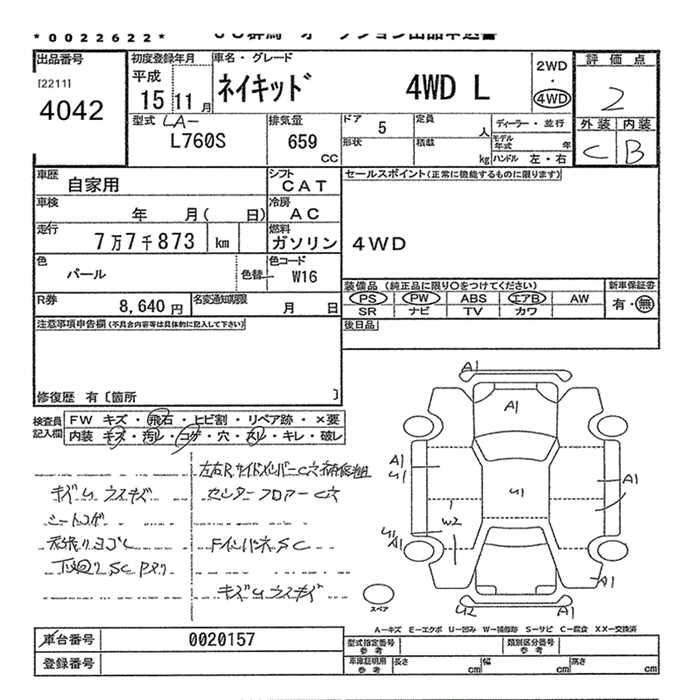 *0022622*
出品番号
[2211]
4042
初度登録年月
平成
15 11月
車名・グレード
ネイキッド 4WD L
2WD
・
4WD
評価点
2
外装 内装
C B
型式
LA-
L760S
排気量
659
cc
ドア 5
形状
定員 人
積載 kg
ディーラー・並行
モデル年式 年
ハンドル 左・右
車歴
自家用
シフト
CAT
車検
年 月( 日)
冷房
AC
走行
7万7千873 km
燃料
ガソリン
色
パール
色替
色コード
W16
R券
8,640円
名変通知期限
月 日
セールスポイント(正常に機能するものに限ります)
4WD
装備品(純正品に限り○をつけてください)
PS PW ABS エアB AW
SR ナビ TV カワ
新車保証書
有・無
後日品
注意事項申告欄(不具合内容等は具体的に記入して下さい)
修復歴 有〔箇所 〕
検査員
記入欄
FW キズ・飛石・ヒビ割・リペア跡・×要
内装 キズ・汚レ・コゲ・穴・スレ・キレ・破レ
キズU ウスキズ
シートコゲ
センターフロアーC穴
FインパネSC
キズU ウスキズ
A1
A1
A1
U1
U1
A1
1
W2
U1
A1
A1
U2
A1
スペア
A−キズ E−エクボ U−凹み W−補修跡 S−サビ C−腐食 XX−交換済
車台番号
0020157
登録番号
型式指定番号
参考
類別区分番号
参考
車庫証明用
参考
長さ cm
幅 cm
高さ cm